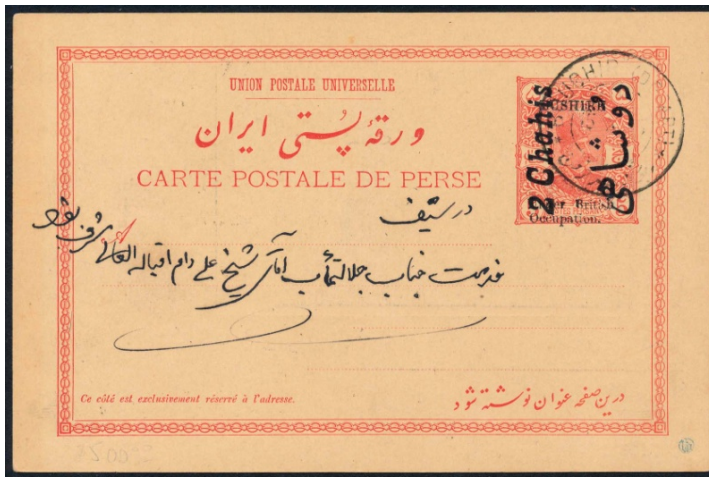 UNION POSTALE UNIVERSELLE
ورقهٔ پستی ایران
CARTE POSTALE DE PERSE
BUSHIRE
2 Chahis
دو شاهی
Under British
Occupation.
خدمت جناب جلالتمآب آقای شیخ علی دام اقباله العالی مشرف شود
Ce côté est exclusivement réservé à l'adresse.
درین صفحه عنوان نوشته شود